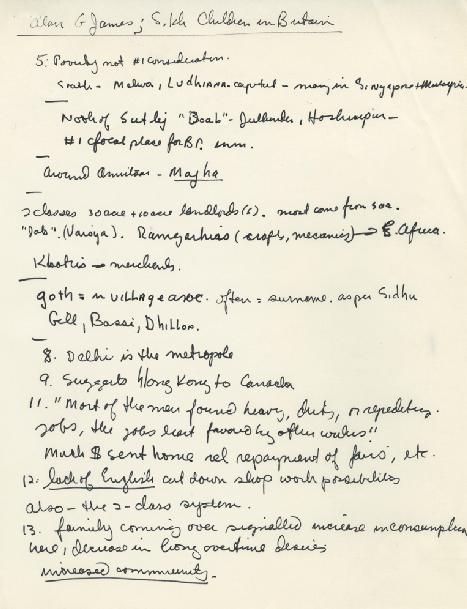 Alan G James; Sikh Children in Britain
5. Poverty not #1 consideration.
South - Malwa, Ludhiana capital - many in Singapore + Malaysia.
North of Sutlej "Doab" - Jullunder, Hoshiarpur -
#1 focal place for Br. imm.
around Amritsar - Majha
2 classes 30 acre + 10 acre landlords(s). most come from 5 a.
"Jats". (Vaisya). Ramgarhias (crafts, mecanics) → E. Africa.
Khatris → merchants.
goth = n village assoc. often = surname. as per Sidhu
Gill, Bassi, Dhillon.
8. Delhi is the metropole
9. Suggests Hong Kong to Canada
11. "Most of the men found heavy, dirty, or repetitive
jobs, the jobs least favoured by other workers."
Much $ sent home rel repayment of fairs, etc.
12. lack of English cut down shop work possibilities
also - the 2-class system.
13. family coming over signalled increase in consumption
here, decrease in long overtime desires
increased community.